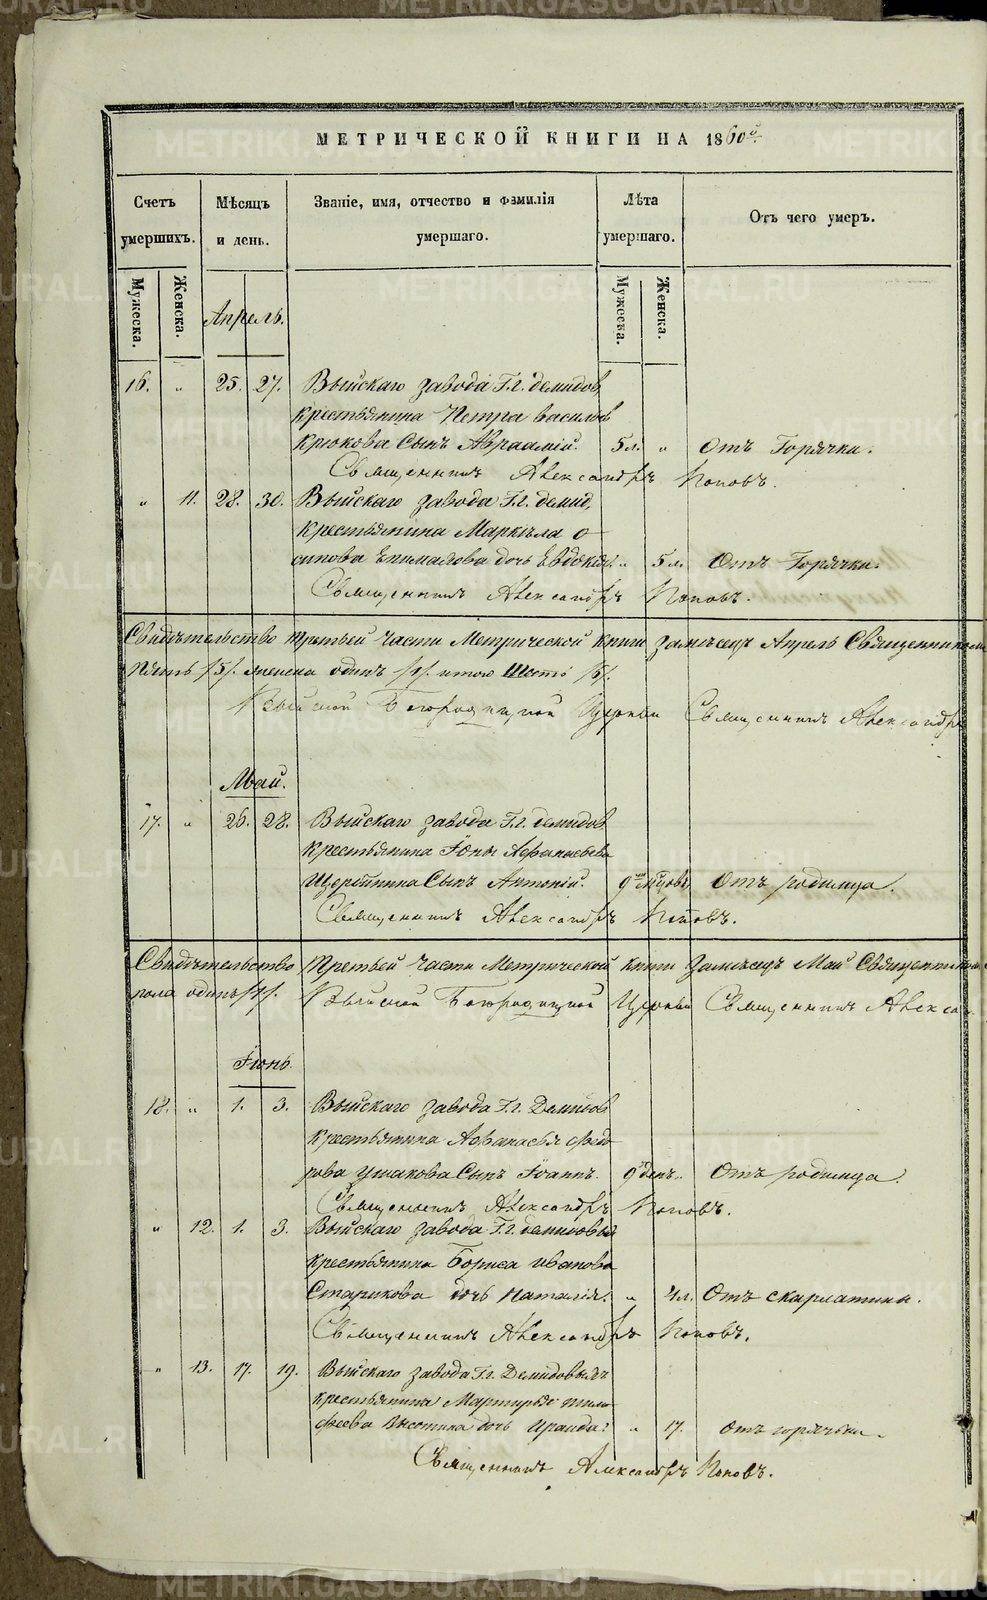 МЕТРИЧЕСКОЙ КНИГИ НА 1860й.
Счетъ умершихъ.
Мѣсяцъ и день.
Званіе, имя, отчество и фамилія умершаго.
Лѣта умершаго.
Отъ чего умеръ.
Мужеска.
Женска.
Мужеска.
Женска.
Апрель.
16. „ 25. 27. Выйскаго завода Г.г. Демидов
крестьянина Петра Васильев
Крюкова Сынъ Авраамій. 5 л. „ Отъ Горячки.
Священникъ Александръ Поповъ.
„ 11. 28. 30. Выйскаго завода Г.г. Демид.
крестьянина Маркѣла О
сипова дочь Евдокія. „ 5 л. Отъ Горячки.
Священникъ Александръ Поповъ.
Свидѣтельство третьей части Метрической книги за мѣсяцъ Апрель Священник
пять /5/. женска одинъ /1/. итого Шесть /6/.
Выйской Богородицкой Церкви Священникъ Александръ
Май.
17. „ 26. 28. Выйскаго завода Г.г. Демидов
крестьянина Іоны Афанасьева
Сынъ Антоній. 9 мѣсяцовъ Отъ родимца.
Священникъ Александръ Поповъ.
Свидѣтельство Третьей части Метрической книги за мѣсяцъ Май Священник
пола одинъ /1/. Выйской Богородицкой Церкви Священникъ Алекса
Іюнь.
18. „ 1. 3. Выйскаго завода Г.г. Демидов
крестьянина Афанасья Федо
рова Ушакова Сынъ Іоаннъ. 9 денъ. „ Отъ родимца.
Священникъ Александръ Поповъ.
„ 12. 1. 3. Выйскаго завода Г.г. Демидовых
крестьянина Бориса Иванова
Старикова дочь Наталія. „ 4 л. Отъ скарлатины.
Священникъ Александръ Поповъ.
„ 13. 17. 19. Выйскаго завода Г.г. Демидовыхъ
крестьянина Мартирія Тимо
феева дочь Ираида. „ 17. Отъ горячьки.
Священникъ Александръ Поповъ.
METRIKI.GASO-URAL.RU